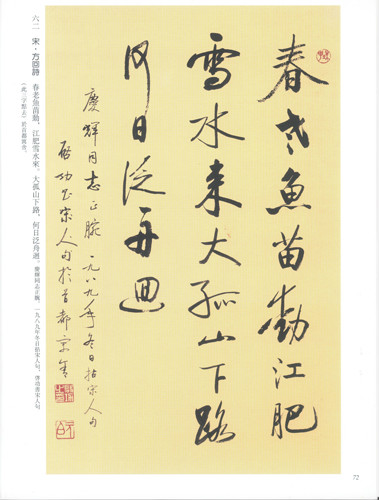 春老魚苗動江肥
雪水來大孤山下路
何日泛舟迴
慶輝同志正腕一九八九年冬日拈宋人句
啓功書宋人句於首都寓舍
六二 宋·方回詩 春老魚苗動，江肥雪水來。大孤山下路，何日泛舟迴。慶輝同志正腕，一九八九年冬日拈宋人句。啓功書宋人句
（此二字點去）於首都寓舍。
72